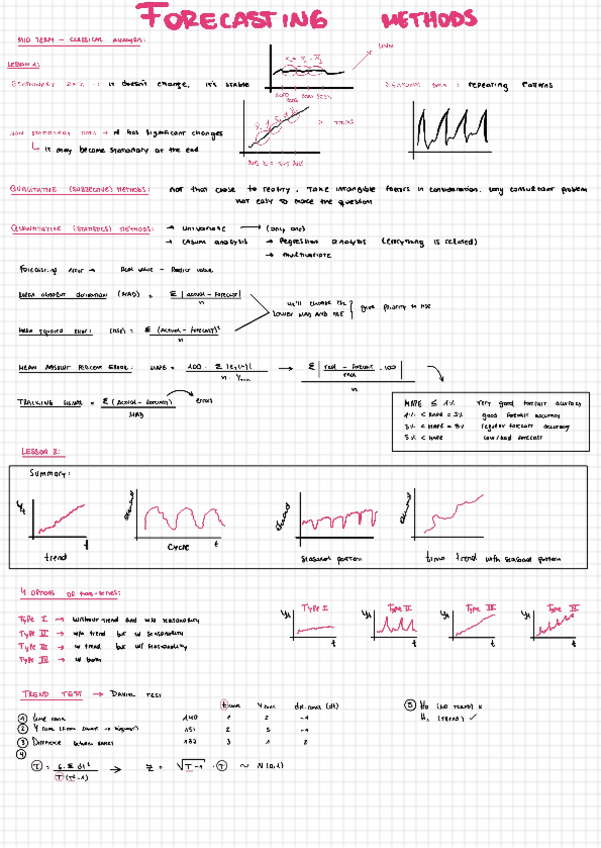 FORECASTING METHODS
MID TERM - CLASSICAL ANALYSIS:
LESSON 1:
STATIONARY DATA : it doesn't change, it's stable
SEASONAL DATA : repeating patterns
NON STATIONARY DATA → it has significant changes
→ TREND
↳ it may become stationary at the end
QUALITATIVE (SUBJECTIVE) METHODS: not that close to reality. Take intangible factors in consideration. Long consultant problem
not easy to make the question
QUANTITATIVE (STATISTICS) METHODS: → univariate → (only one)
→ casual analysis → Regression analysis (everything is related)
→ multivariate
Forecasting error → Real value - Predict value
MEAN ABSOLUT DEVIATION (MAD) = Σ | actual - forecast | / n
we'll choose the lower MAD and MSE } give priority to MSE
MEAN SQUARED ERROR: (MSE) = Σ (actual - forecast)² / n
MEAN ABSOLUT PERCENT ERROR: MAPE = 100 ·
→ Σ | real - forecast / real · 100 | / n
TRACKING SIGNAL = Σ (actual - forecast) / MAD → error
MAPE ≤ 1% very good forecast accuracy
1% < MAPE = 3% good forecast accuracy
3% < MAPE = 5% regular forecast accuracy
5% < MAPE low/bad forecast
LESSON 2:
Summary:
Yt
t
trend
demand
t
cycle
demand
seasonal pattern
demand
time trend with seasonal pattern
4 OPTIONS OF time-series:
Type I → without trend and w/o seasonality
Type II → w/o trend but w seasonality
Type III → w trend but w/o seasonality
Type IV → w both
Type I
Type II
Type III
Type IV
Yt
t
Yt
t
Yt
t
Yt
t
TREND TEST → Daniel TEST
t rank Y rank dif. rank (dt)
① time rank 140 1 2 -1
② Y rank 151 2 3 -1
③ Difference between ranks 132 3 1 2
④
T (T²-1) → Z = √T-1 · ~ N(0,1)
⑤ H₀ (no trend) x
H₁ (trend) ✓